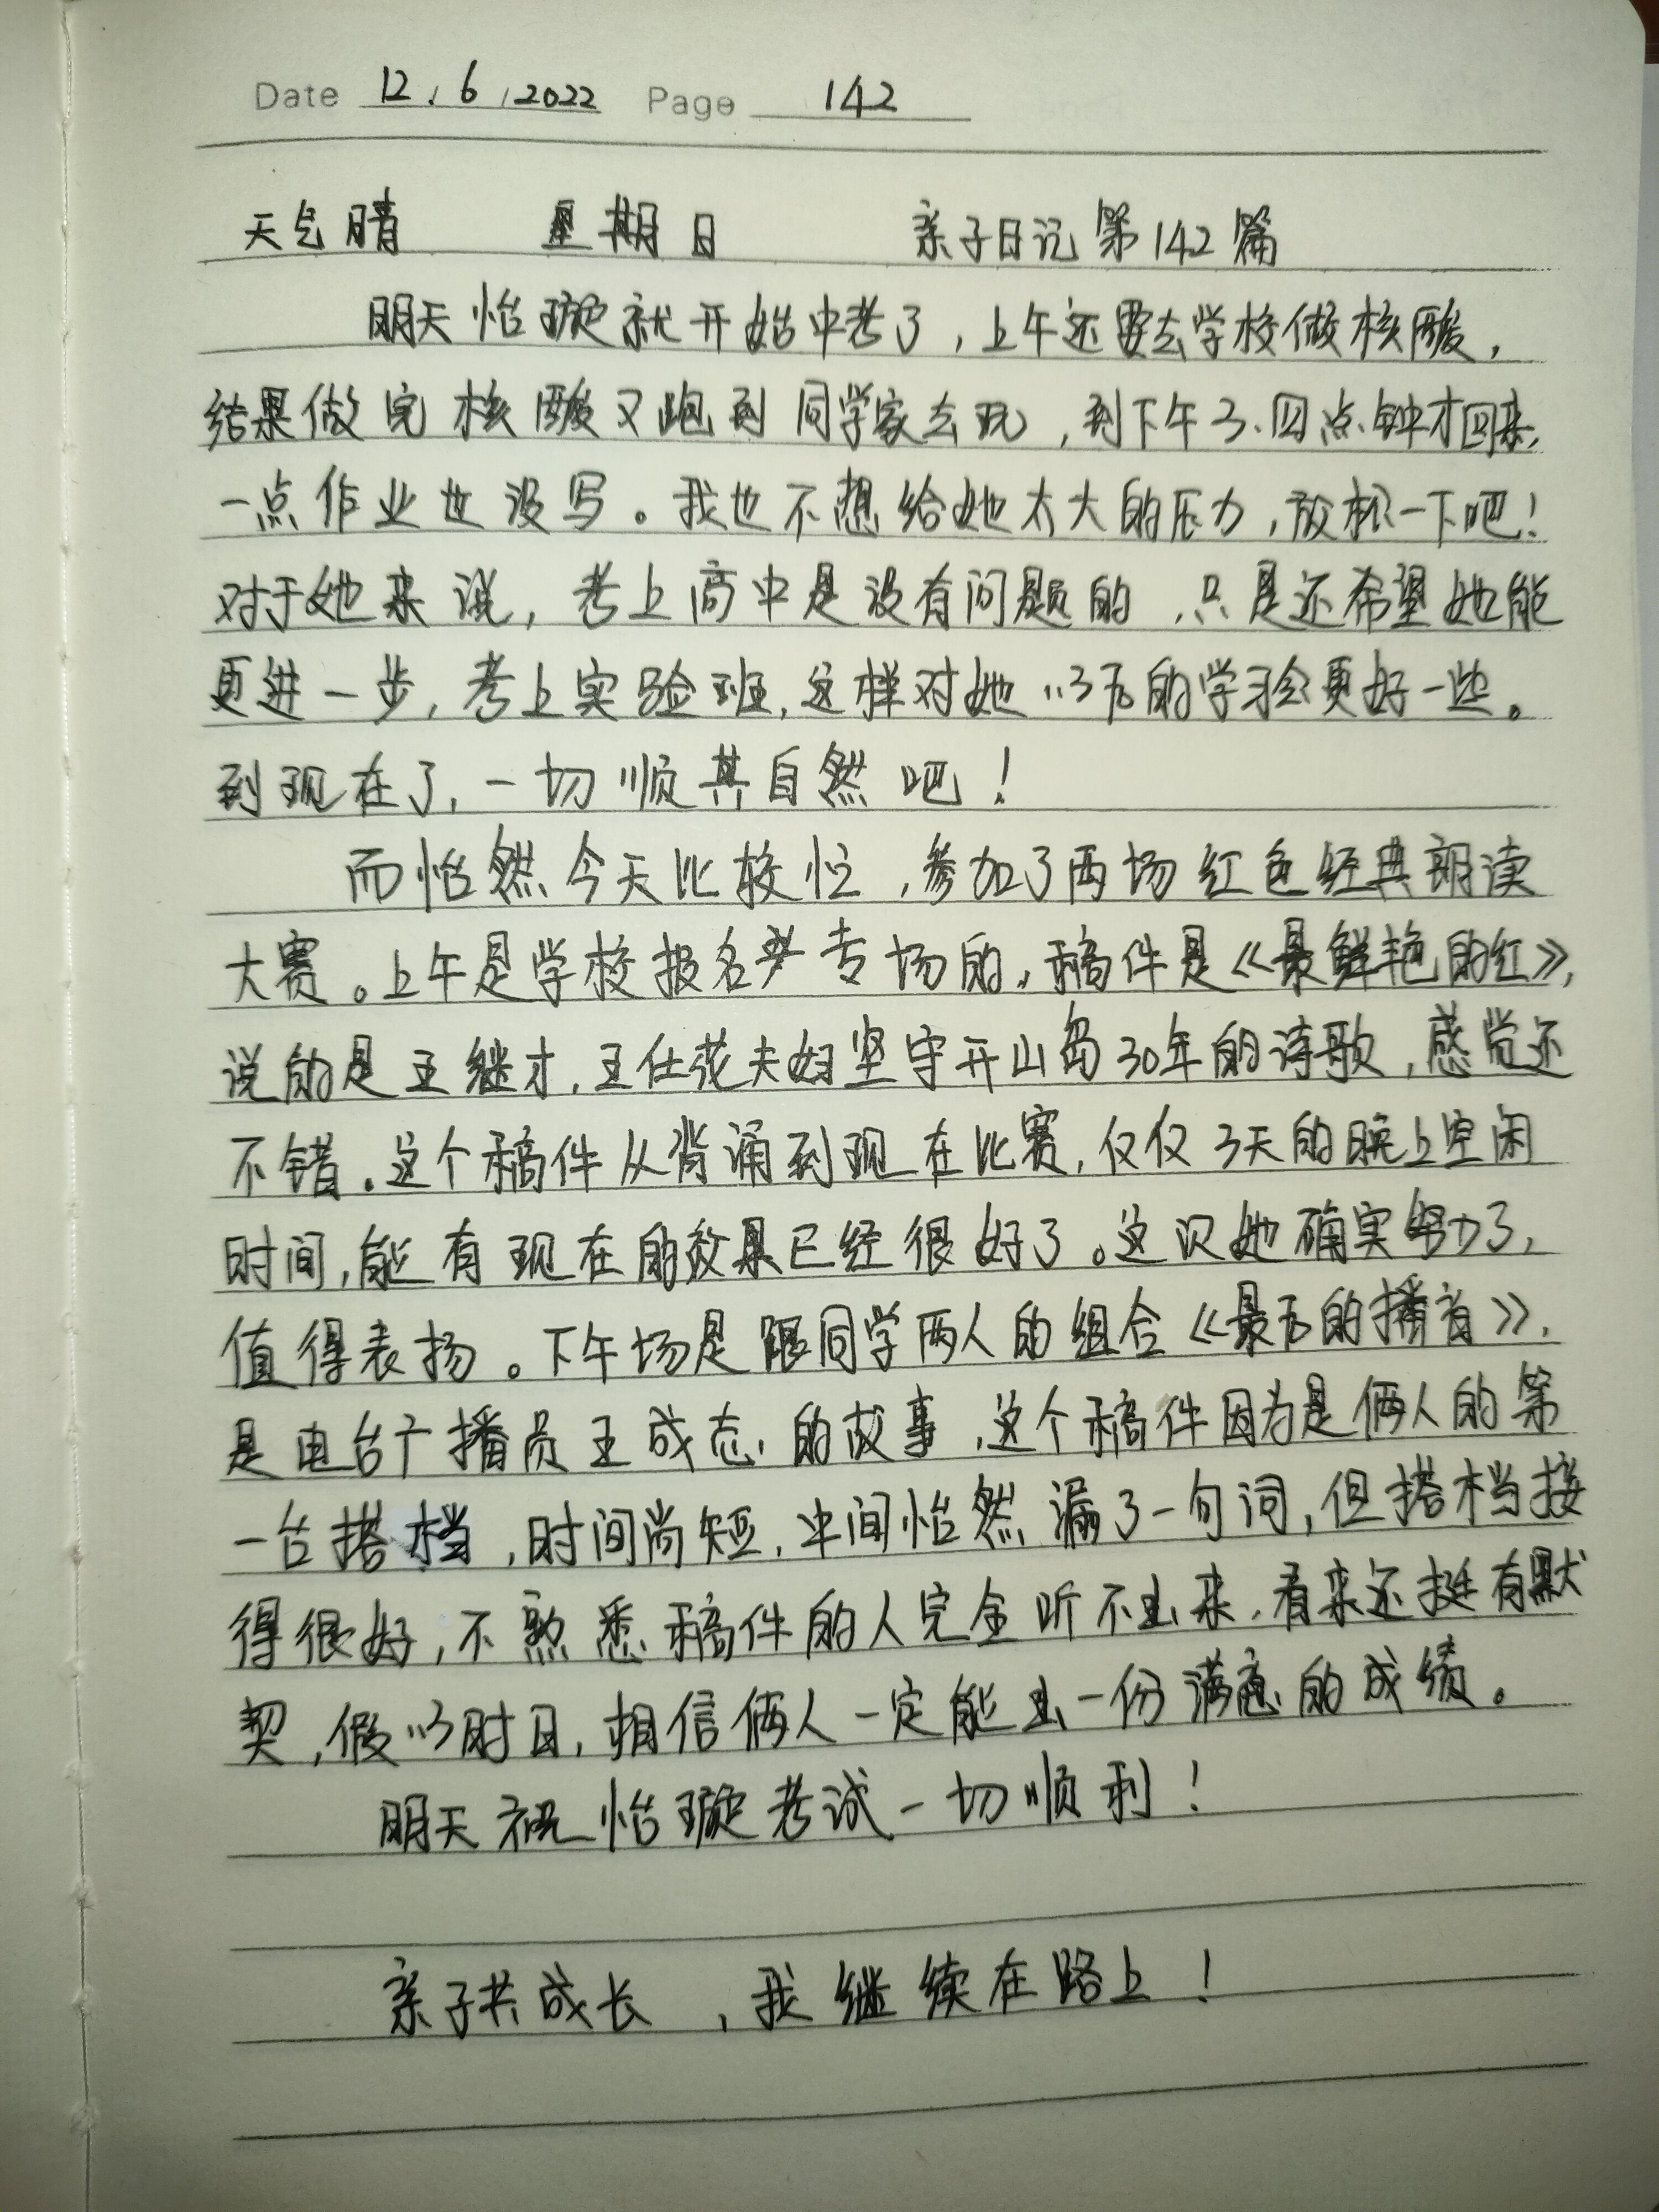 Date 12.6.2022 Page 142
天气晴 星期日 亲子日记第142篇
明天怡璇就开始中考了，上午还要去学校做核酸，
结果做完核酸又跑到同学家去玩，到下午3、四点钟才回来，
一点作业也没写。我也不想给她太大的压力，放松一下吧！
对于她来说，考上高中是没有问题的，只是还希望她能
更进一步，考上实验班，这样对她以后的学习会更好一些。
到现在了，一切顺其自然吧！
而怡然今天比较忙，参加了两场红色经典朗读
大赛。上午是学校报名专场的，稿件是《最鲜艳的红》，
说的是王继才，王仕花夫妇坚守开山岛30年的诗歌，感觉还
不错。这个稿件从背诵到现在比赛，仅仅3天的晚上空闲
时间，能有现在的效果已经很好了。这次她确实努力了，
值得表扬。下午场是跟同学两人的组合《最后的播音》，
是电台广播员王成志的故事，这个稿件因为是俩人的第
一台搭档，时间尚短，中间怡然漏了一句词，但搭档接
得很好，不熟悉稿件的人完全听不出来，看来还挺有默
契，假以时日，相信俩人一定能出一份满意的成绩。
明天祝怡璇考试一切顺利！
亲子共成长，我继续在路上！